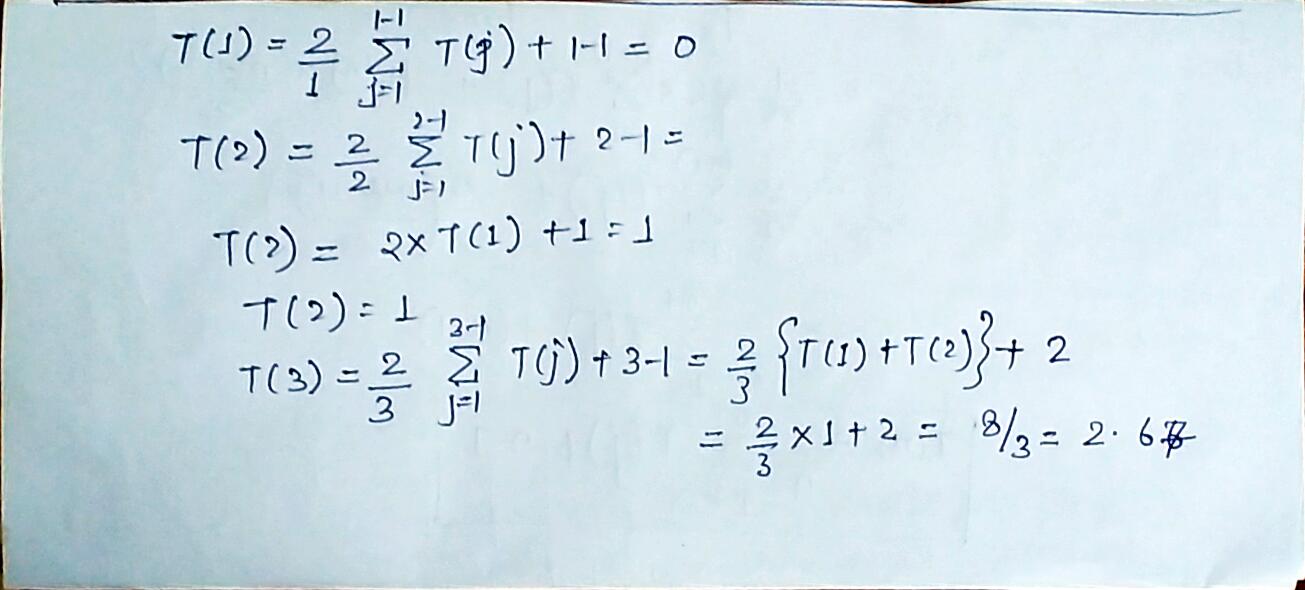 T(1) = 2/1 Σ_{j=1}^{1-1} T(j) + 1-1 = 0
T(2) = 2/2 Σ_{j=1}^{2-1} T(j) + 2-1 =
T(2) = 2x T(1) +1 = 1
T(2) = 1
T(3) = 2/3 Σ_{j=1}^{3-1} T(j) + 3-1 = 2/3 {T(1) + T(2)} + 2
= 2/3 x 1 + 2 = 8/3 = 2.6